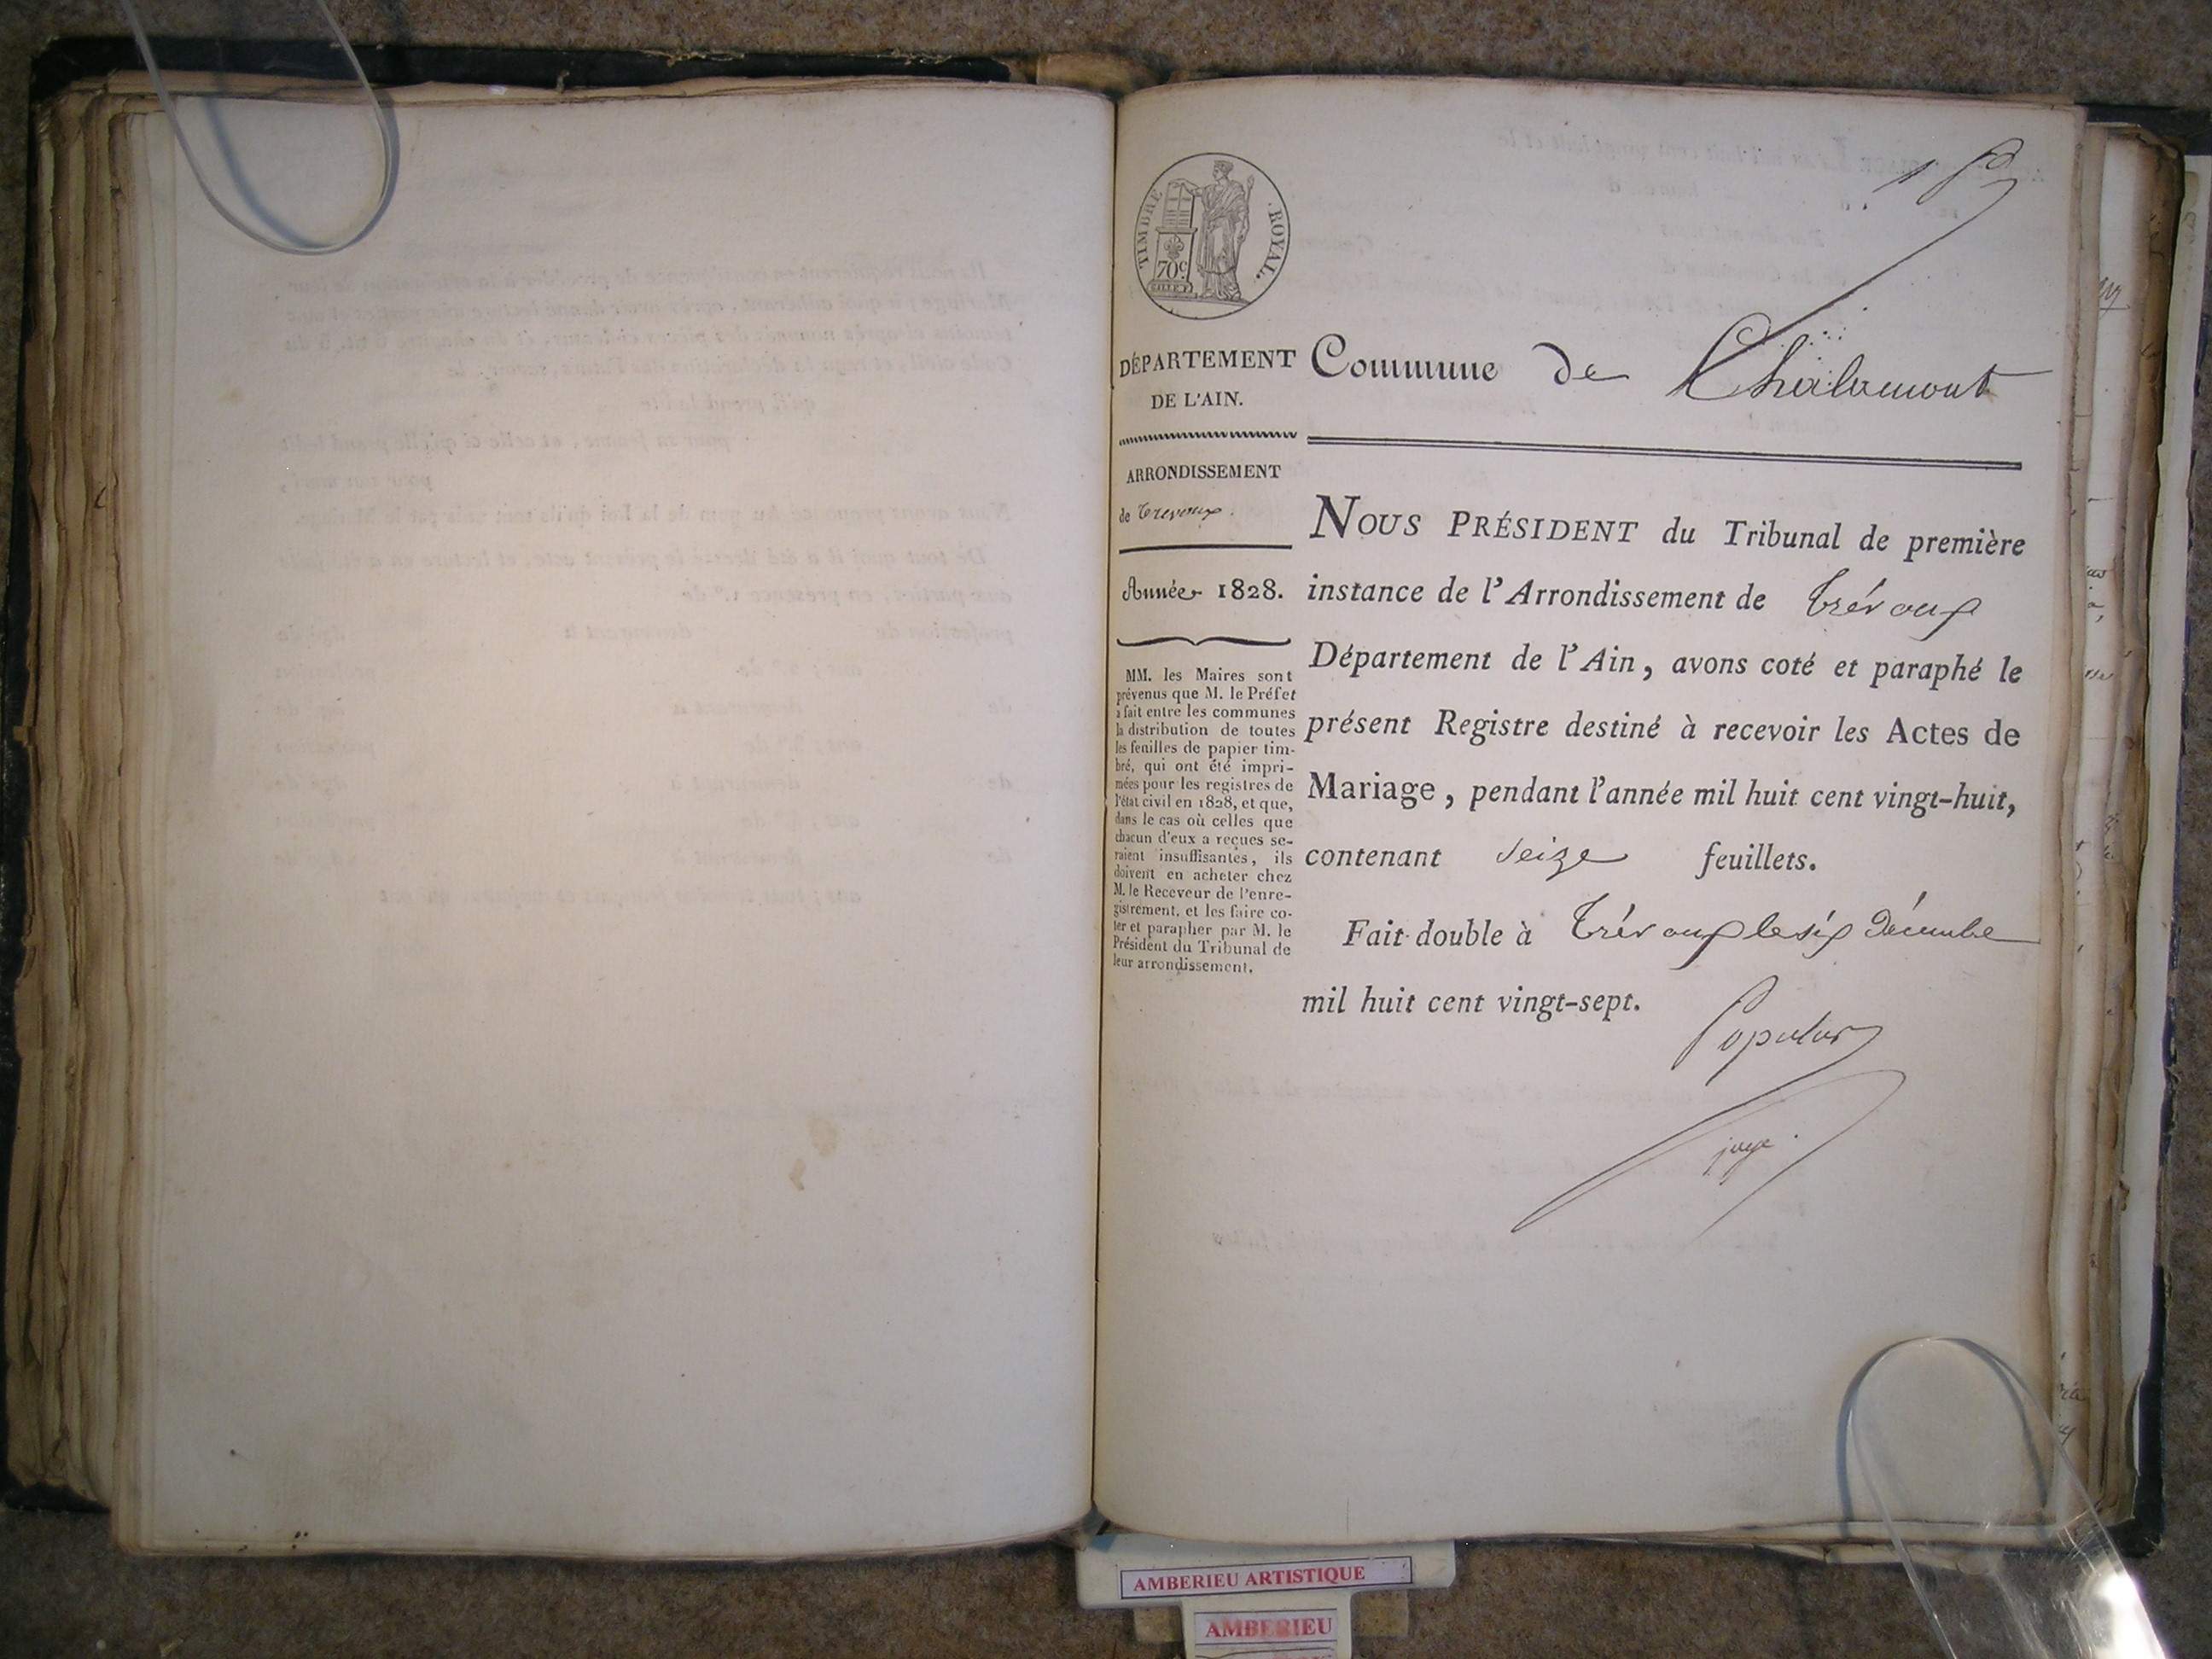 TIMBRE ROYAL.
70c
DÉPARTEMENT
DE L'AIN.
ARRONDISSEMENT
de Trevoux.
Année 1828.
MM. les Maires sont
prévenus que M. le Préfet
a fait entre les communes
la distribution de toutes
les feuilles de papier tim-
bré, qui ont été impri-
mées pour les registres de
l'état civil en 1828, et que,
dans le cas où celles que
chacun d'eux a reçues se-
raient insuffisantes, ils
doivent en acheter chez
M. le Receveur de l'enre-
gistrement, et les faire co-
ter et parapher par M. le
Président du Tribunal de
leur arrondissement.
1
Commune de Chalamont
NOUS PRÉSIDENT du Tribunal de première
instance de l'Arrondissement de Trévoux
Département de l'Ain, avons coté et paraphé le
présent Registre destiné à recevoir les Actes de
Mariage, pendant l'année mil huit cent vingt-huit,
contenant seize feuillets.
Fait double à Trévoux le six décembre
mil huit cent vingt-sept.
juge.
AMBERIEU ARTISTIQUE
AMBERIEU